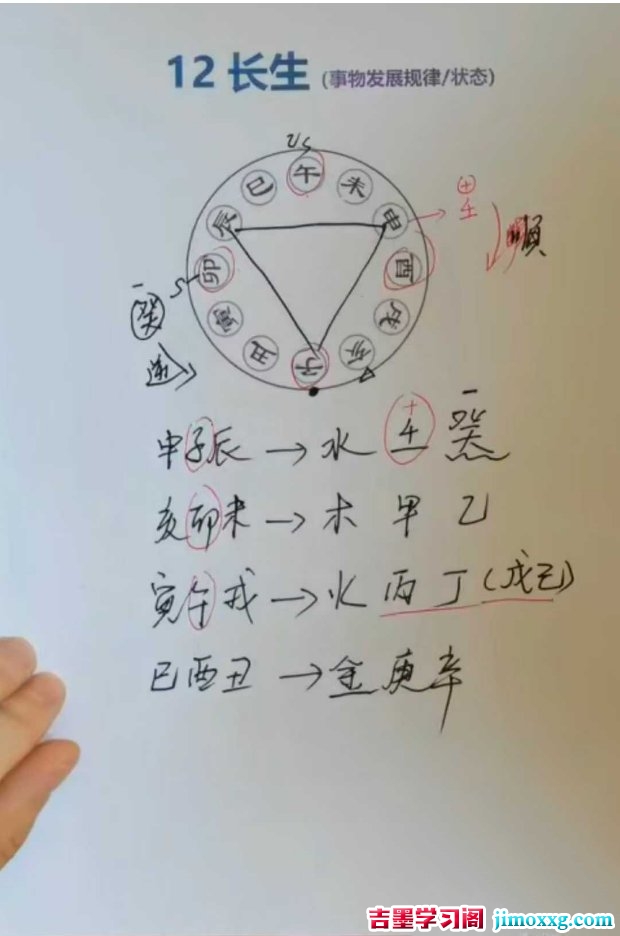 12 长生 (事物发展规律/状态)
午
巳 未
辰 申 → + 壬
卯 酉 顺
寅 戌
丑 亥
子
- 癸
逆
+ -
申子辰 → 水 壬 癸
亥卯未 → 木 甲 乙
寅午戌 → 火 丙 丁 (戊己)
巳酉丑 → 金 庚 辛
吉墨学习阁 jimoxxg.com